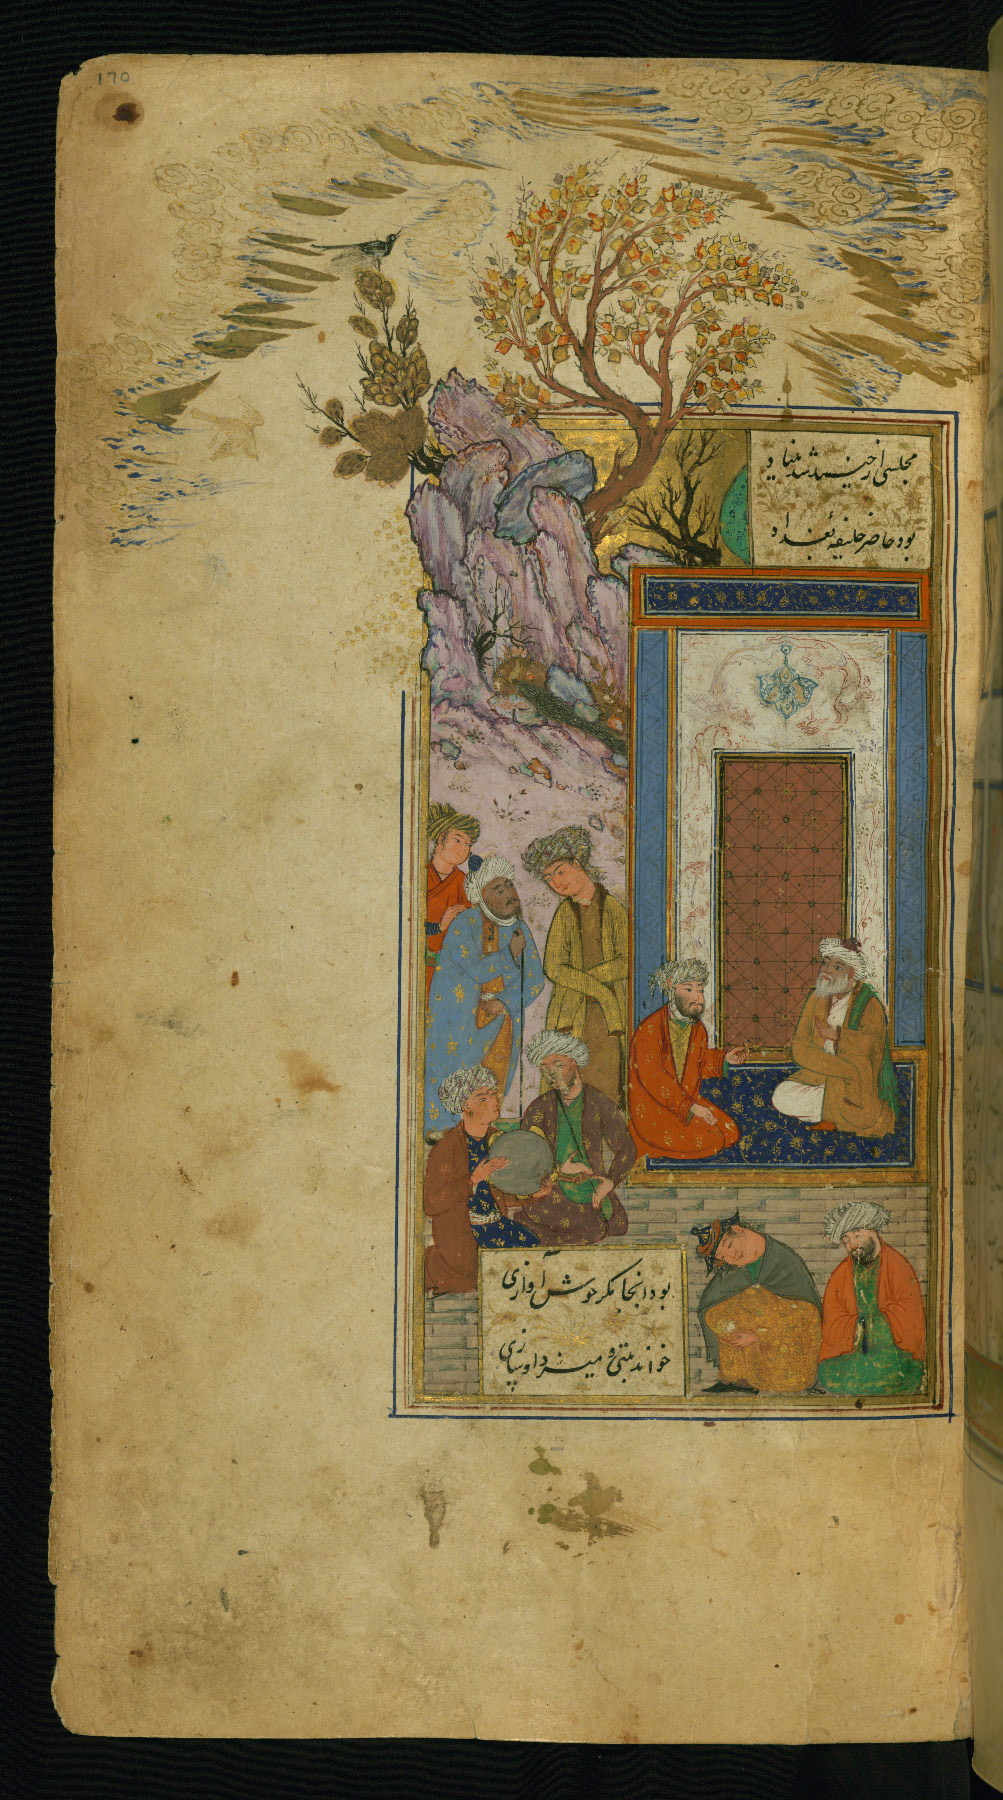 170
مجلسی از جنید شد بنیاد
بود حاضر خلیفهٔ بغداد
بود آنجا مگر خوش آوازی
خواند بیتی و میزد او سازی